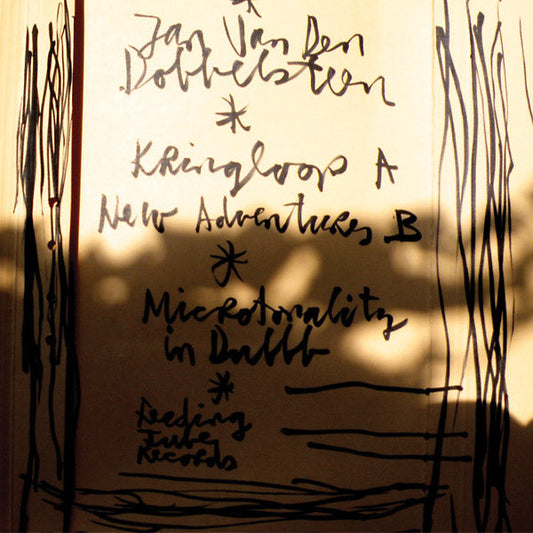 *
Jan Van Den
Dobbelsteen
*
Kringloop A
New Adventures B
*
Microtonality
in Dubbb
*
Feeding
Tube
Records